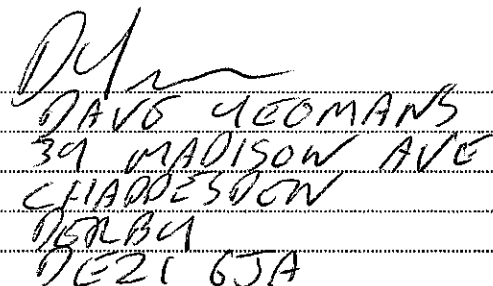 DAVE YEOMANS
39 MADISON AVE
CHADDESDEN
DERBY
DE21 6JA